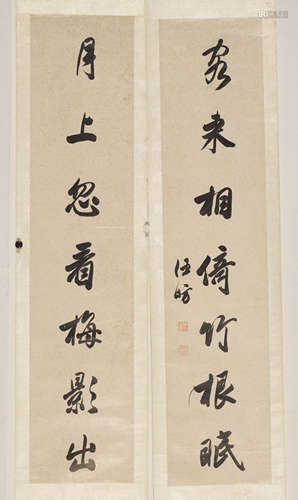 客来相倚竹根眠
汪昉
月上忽看梅影出